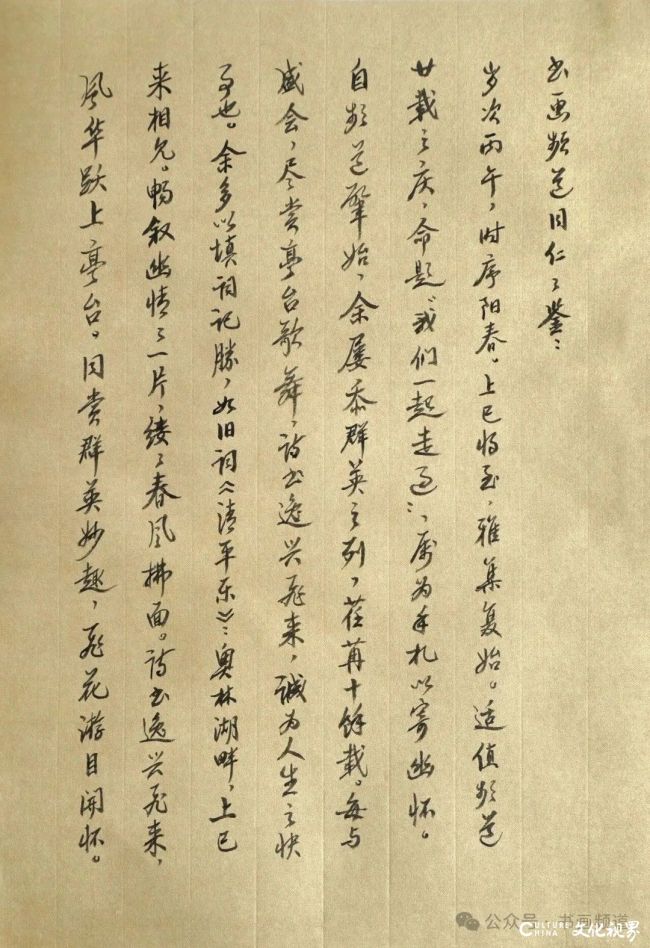 书画频道同仁之鉴：
岁次丙午，时序阳春。上巳将至，雅集复始。适值频道
廿载之庆，命题“我们一起走过”，属为手札以寄幽怀。
自频道肇始，余屡忝群英之列，荏苒十馀载。每与
盛会，尽赏亭台歌舞，诗书逸兴飞来，诚为人生之快
事也。余多以填词记胜，如旧词《清平乐》：奥林湖畔，上巳
来相见。畅叙幽情情一片，缕缕春风拂面。诗书逸兴飞来，
风华跃上亭台。同赏群英妙趣，飞花游目开怀。
公众号·书画频道
CULTURE CHINA 文化视界